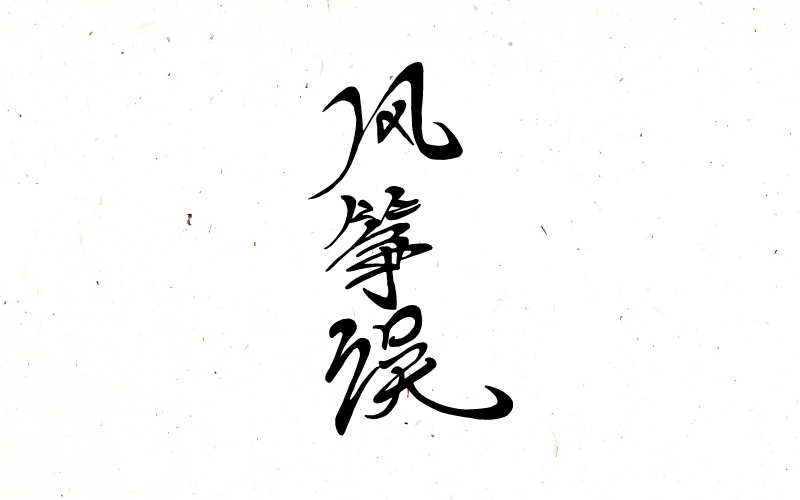 风筝误